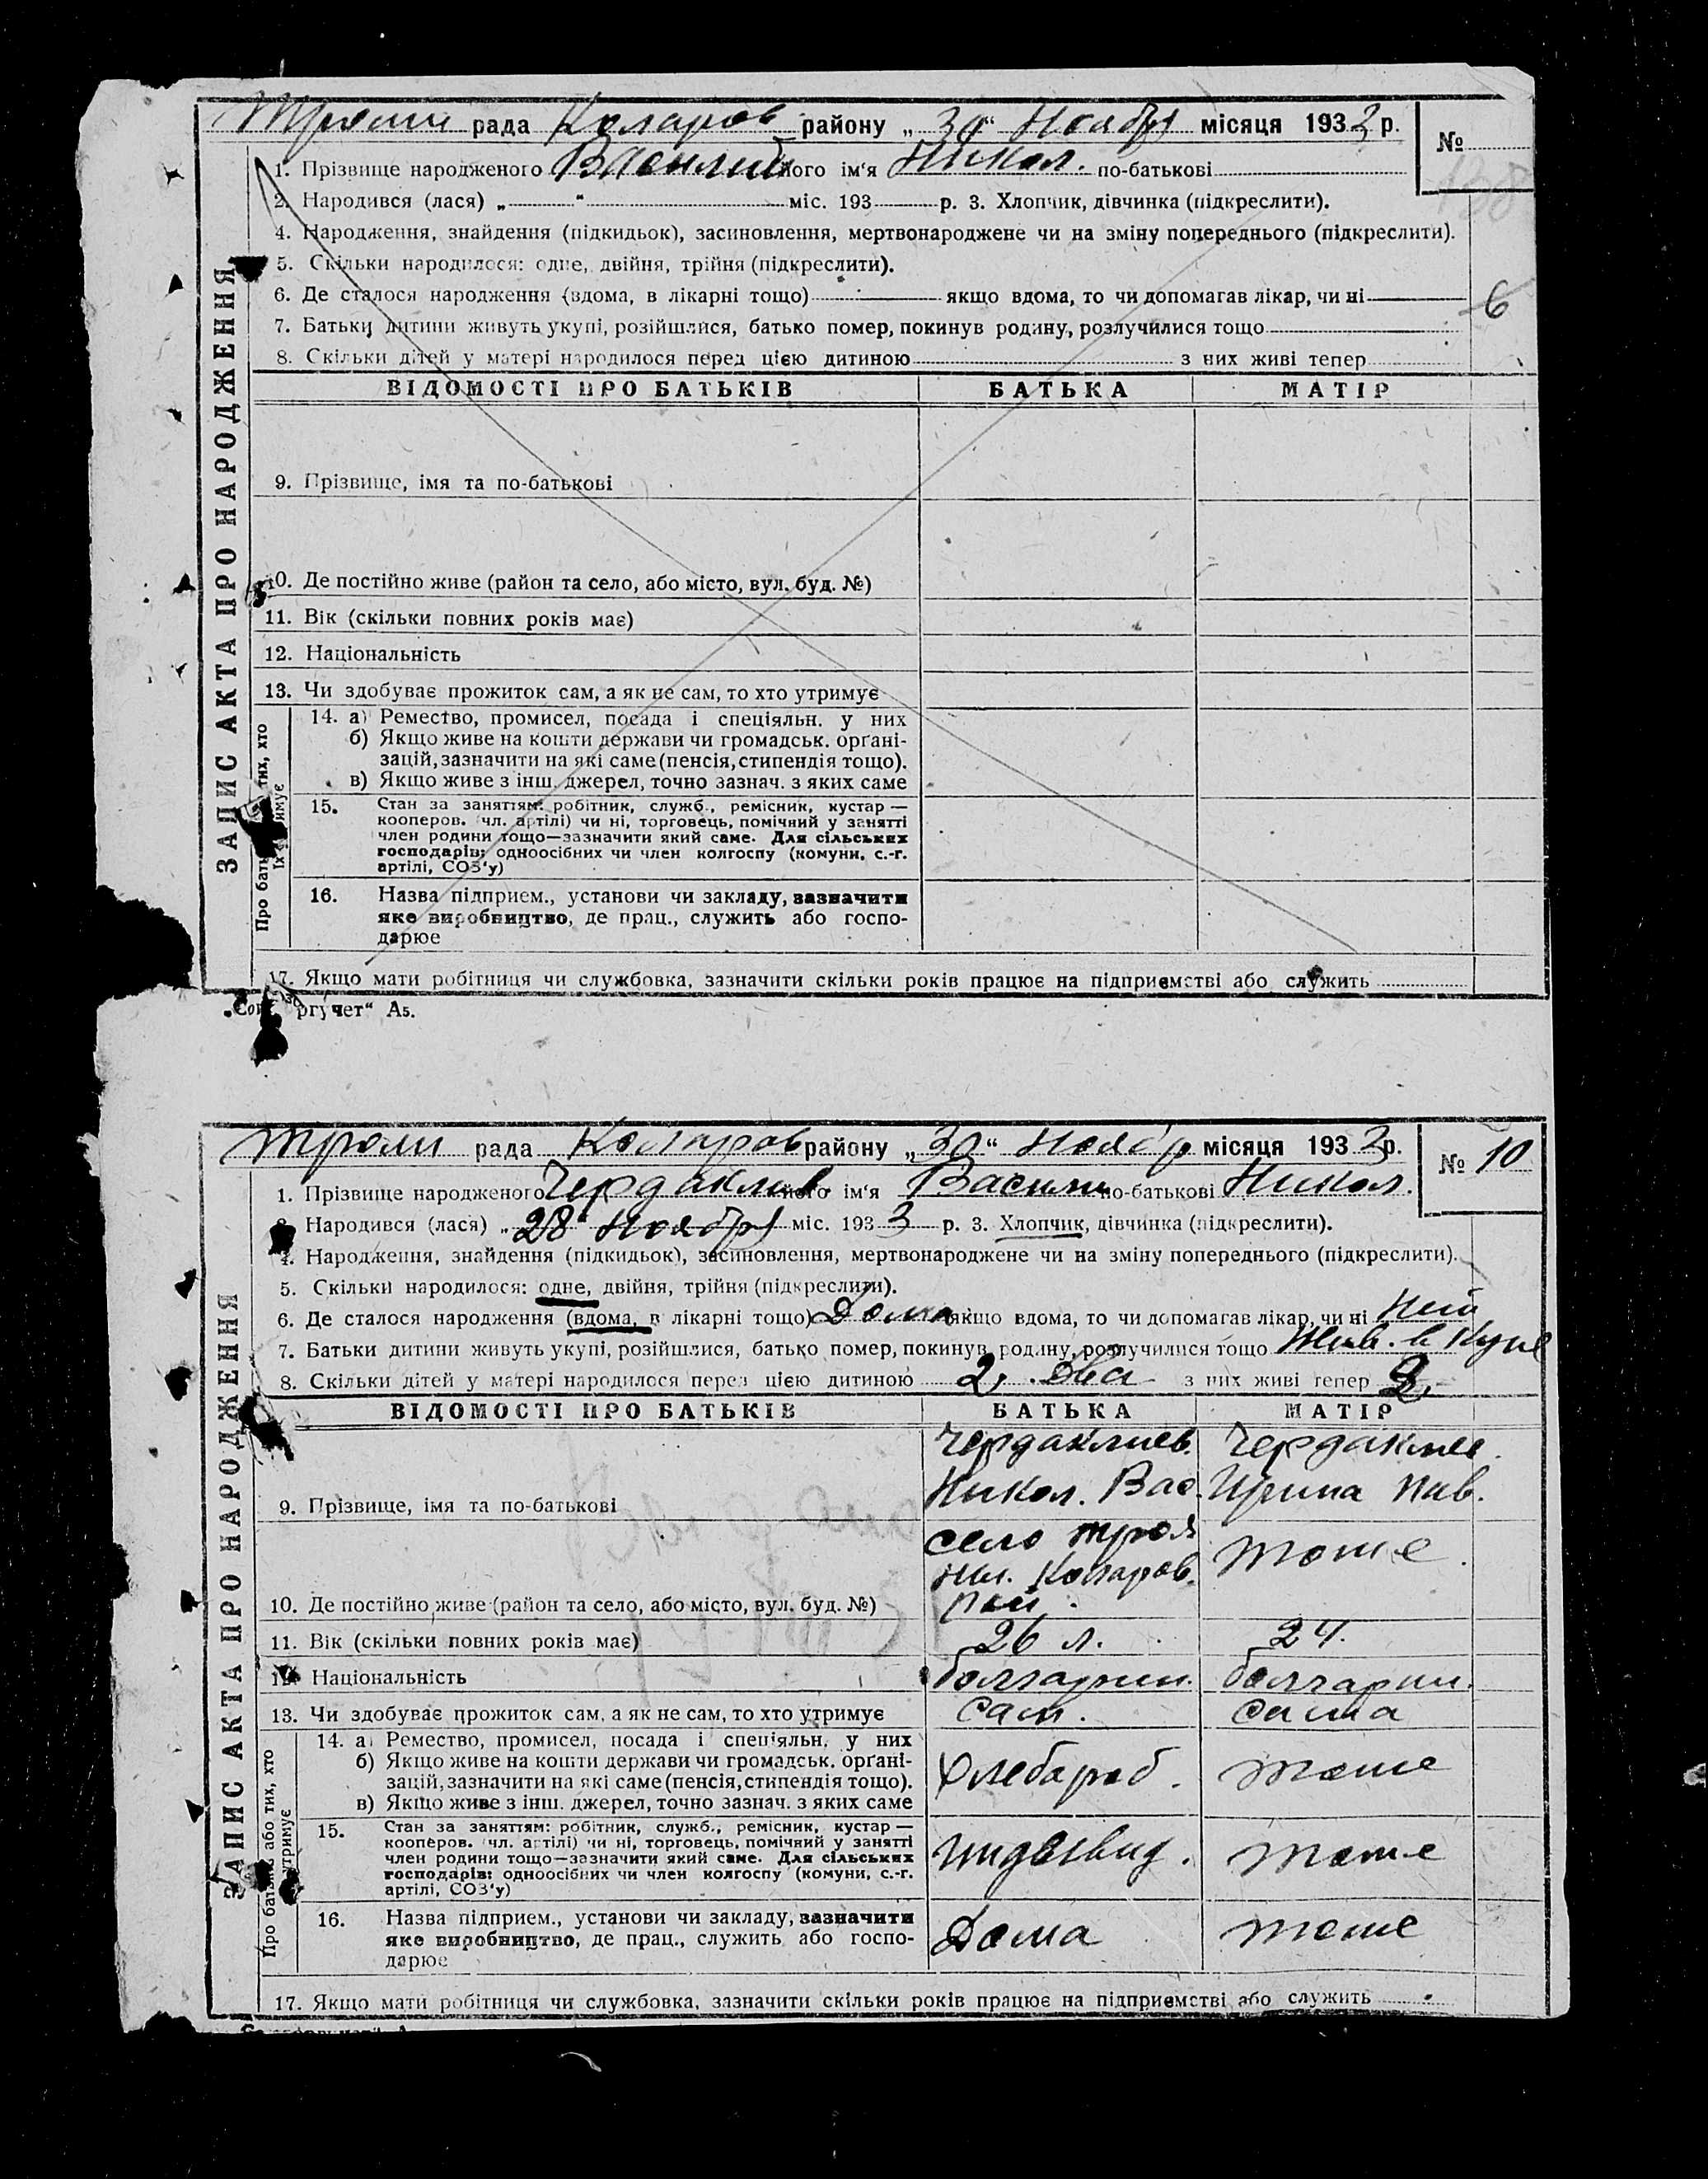 Трояни рада Коларов району „30“ Ноябр місяця 1933 р.
№
138
1. Прізвище народженого Василий його ім‘я Никол. по-батькові
2. Народився (лася) „ “ міс. 193 р. 3. Хлопчик, дівчинка (підкреслити).
4. Народження, знайдення (підкидьок), засиновлення, мертвонароджене чи на зміну попереднього (підкреслити).
5. Скільки народилося: одне, двійня, трійня (підкреслити).
6. Де сталося народження (вдома, в лікарні тощо) якщо вдома, то чи допомагав лікар, чи ні
6
7. Батьки дитини живуть укупі, розійшлися, батько помер, покинув родину, розлучилися тощо
8. Скільки дітей у матері народилося перед цією дитиною з них живі тепер
ВІДОМОСТІ ПРО БАТЬКІВ БАТЬКА МАТІР
9. Прізвище, імя та по-батькові
10. Де постійно живе (район та село, або місто, вул. буд. №)
11. Вік (скільки повних років має)
12. Національність
13. Чи здобуває прожиток сам, а як не сам, то хто утримує
14. а) Ремество, промисел, посада і спеціяльн. у них
б) Якщо живе на кошти держави чи громадськ. орґані-
зацій, зазначити на які саме (пенсія, стипендія тощо).
в) Якщо живе з інш. джерел, точно зазнач. з яких саме
15. Стан за заняттям: робітник, служб., ремісник, кустар —
кооперов. (чл. артілі) чи ні, торговець, помічний у занятті
член родини тощо—зазначити який саме. Для сільських
господарів: одноосібних чи член колгоспу (комуни, с.-г.
артілі, СОЗ‘у)
16. Назва підприєм., установи чи закладу, зазначити
яке виробництво, де прац., служить або госпо-
дарює
17. Якщо мати робітниця чи службовка, зазначити скільки років працює на підприємстві або служить
ЗАПИС АКТА ПРО НАРОДЖЕННЯ
Про бать тих, хто
їх имує
ргучет“ А5.
Трояни рада Коларов району „30“ Ноябр місяця 1933 р.
№ 10
1. Прізвище народженого Чердаклиев його ім‘я Васили по-батькові Никол.
Народився (лася) „28“ Ноябр міс. 1933 р. 3. Хлопчик, дівчинка (підкреслити).
4. Народження, знайдення (підкидьок), засиновлення, мертвонароджене чи на зміну попереднього (підкреслити).
5. Скільки народилося: одне, двійня, трійня (підкреслити).
6. Де сталося народження (вдома, в лікарні тощо) Дома якщо вдома, то чи допомагав лікар, чи ні Нет
7. Батьки дитини живуть укупі, розійшлися, батько помер, покинув родину, розлучилися тощо Жив. в купе
8. Скільки дітей у матері народилося перед цією дитиною 2, два з них живі тепер 2,
ВІДОМОСТІ ПРО БАТЬКІВ БАТЬКА МАТІР
Чердаклиев. Чердаклие.
9. Прізвище, імя та по-батькові Никол. Вас. Ирина Пав.
село Троя
ни. Коларов. тоже.
10. Де постійно живе (район та село, або місто, вул. буд. №) рай.
11. Вік (скільки повних років має) 26 л. 24.
12. Національність болгарин. болгарин.
13. Чи здобуває прожиток сам, а як не сам, то хто утримує сам. сама
14. а) Ремество, промисел, посада і спеціяльн. у них
б) Якщо живе на кошти держави чи громадськ. орґані-
зацій, зазначити на які саме (пенсія, стипендія тощо). Хлебароб. тоже
в) Якщо живе з інш. джерел, точно зазнач. з яких саме
15. Стан за заняттям: робітник, служб., ремісник, кустар —
кооперов. (чл. артілі) чи ні, торговець, помічний у занятті
член родини тощо—зазначити який саме. Для сільських Индывид. тоже
господарів: одноосібних чи член колгоспу (комуни, с.-г.
артілі, СОЗ‘у)
16. Назва підприєм., установи чи закладу, зазначити
яке виробництво, де прац., служить або госпо- Дома тоже
дарює
17. Якщо мати робітниця чи службовка, зазначити скільки років працює на підприємстві або служить
ЗАПИС АКТА ПРО НАРОДЖЕННЯ
Про батька або тих, хто
утримує